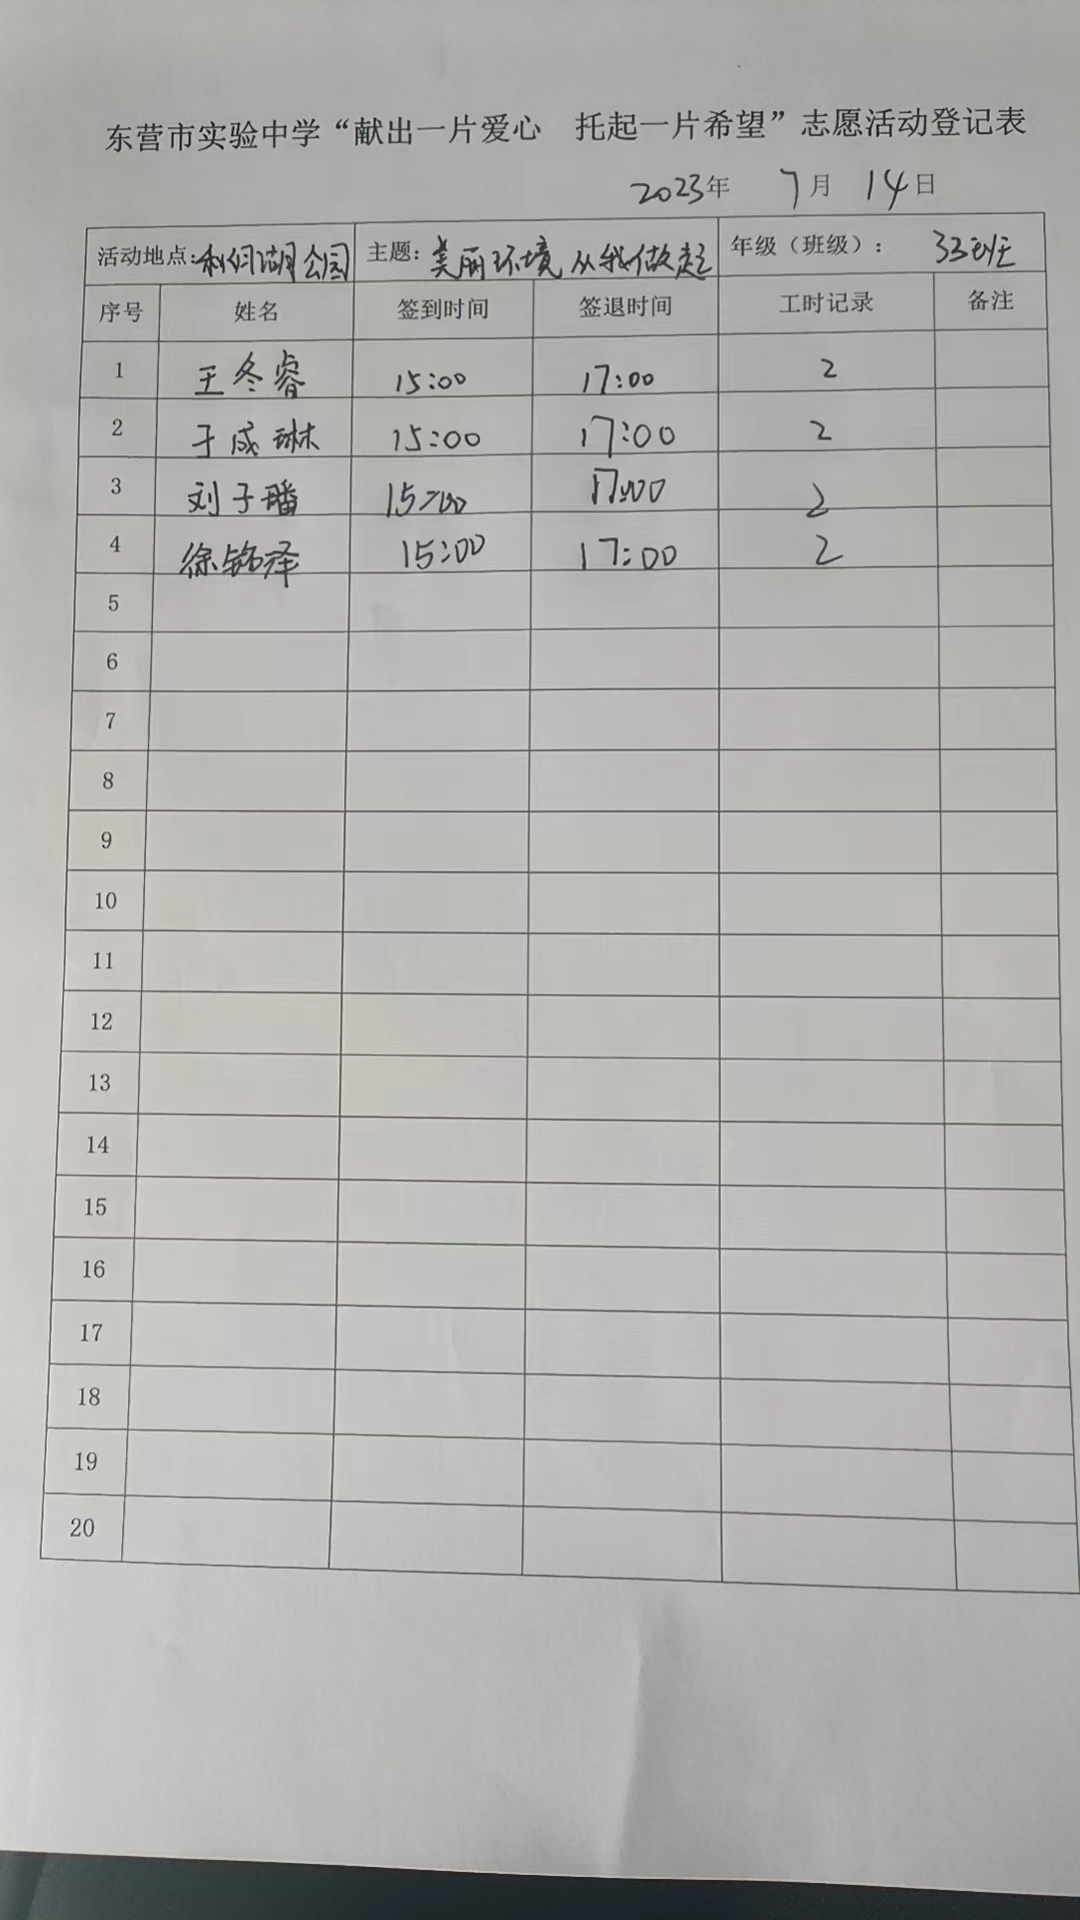 东营市实验中学“献出一片爱心 托起一片希望”志愿活动登记表
2023年 7月 14日
活动地点:利伺湖公园 主题:美丽环境从我做起 年级（班级）: 33班
序号 姓名 签到时间 签退时间 工时记录 备注
1 王冬睿 15:00 17:00 2
2 于成琳 15:00 17:00 2
3 刘子璠 15:00 17:00 2
4 徐铭泽 15:00 17:00 2
5
6
7
8
9
10
11
12
13
14
15
16
17
18
19
20